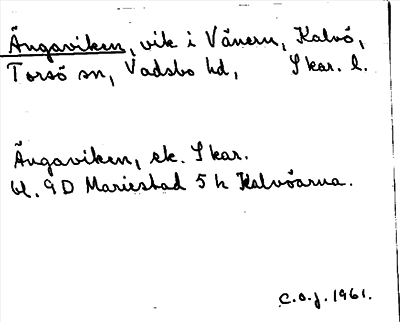 Ängaviken, vik i Vänern, Kalvö,
Torsö sn, Vadsbo hd, Skar. l.
Ängaviken, ek. Skar.
bl. 9D Mariestad 5 h Kalvöarna.
C.O.J. 1961.